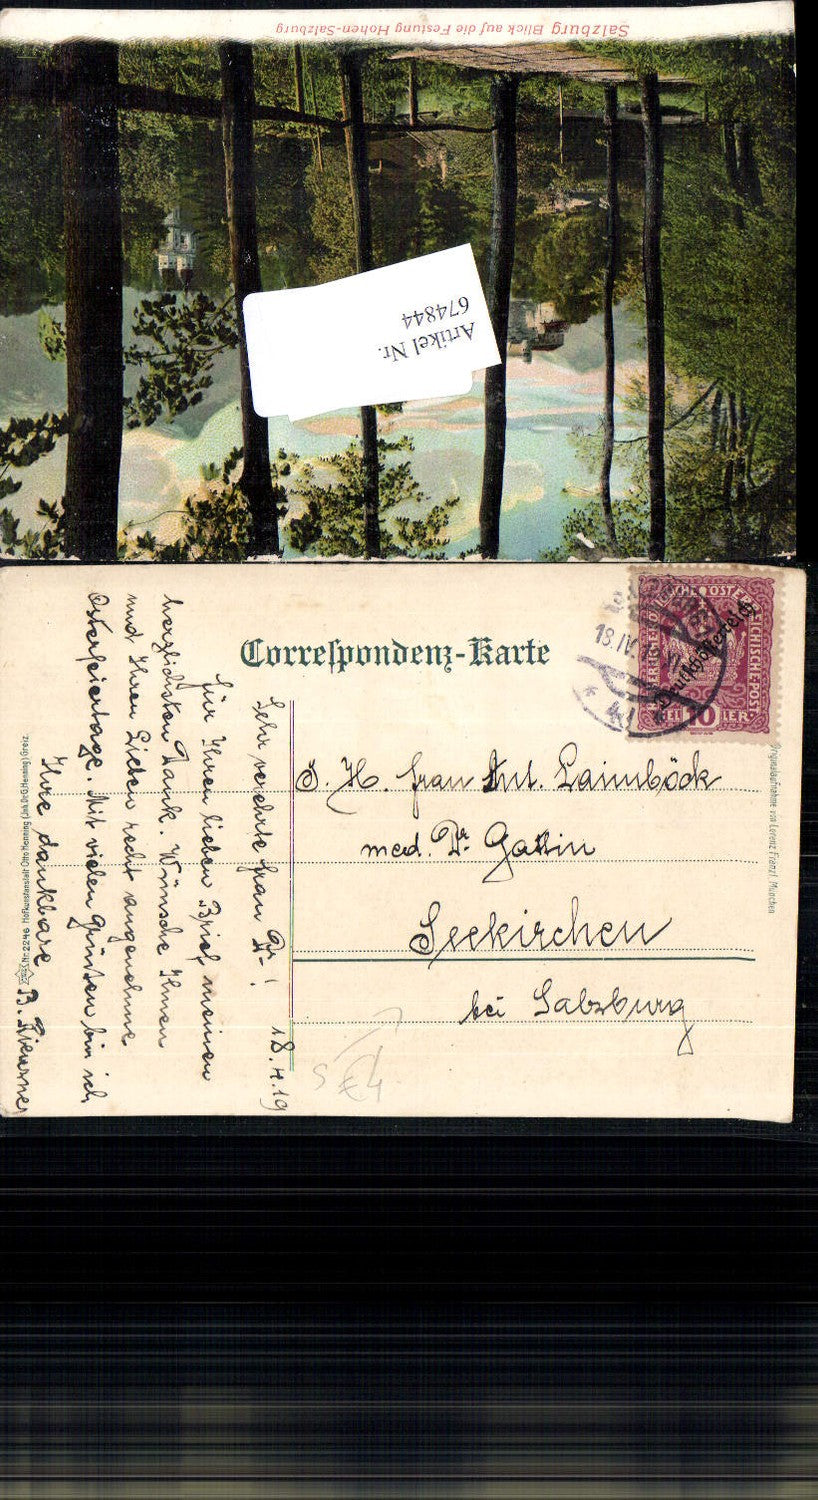 Salzburg Blick auf die Festung Hohen-Salzburg
Artikel Nr.
674844
Correspondenz-Karte
Deutschösterreich
18.IV
I. H. Frau Ant. Laimböck
med. Dr. Gattin
Seekirchen
bei Salzburg
18.4.19
Sehr verehrte Frau Dr!
Für Ihren lieben Brief meinen
herzlichsten Dank. Wünsche Ihnen
und Ihren Lieben recht angenehme
Osterfeiertage. Mit vielen Grüßen bin ich
Ihre dankbare B.
Nr. 2246 Hofkunstanstalt Otto Henning (Inh. Dr. G. Henning) Greiz.
Originalaufnahme von Lorenz Fränzl München